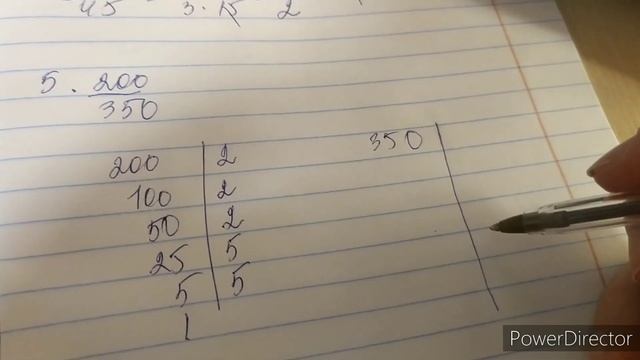 45 3·15 2
5. 200
350
200 | 2 350 |
100 | 2
50 | 2
25 | 5
5 | 5
1
PowerDirector